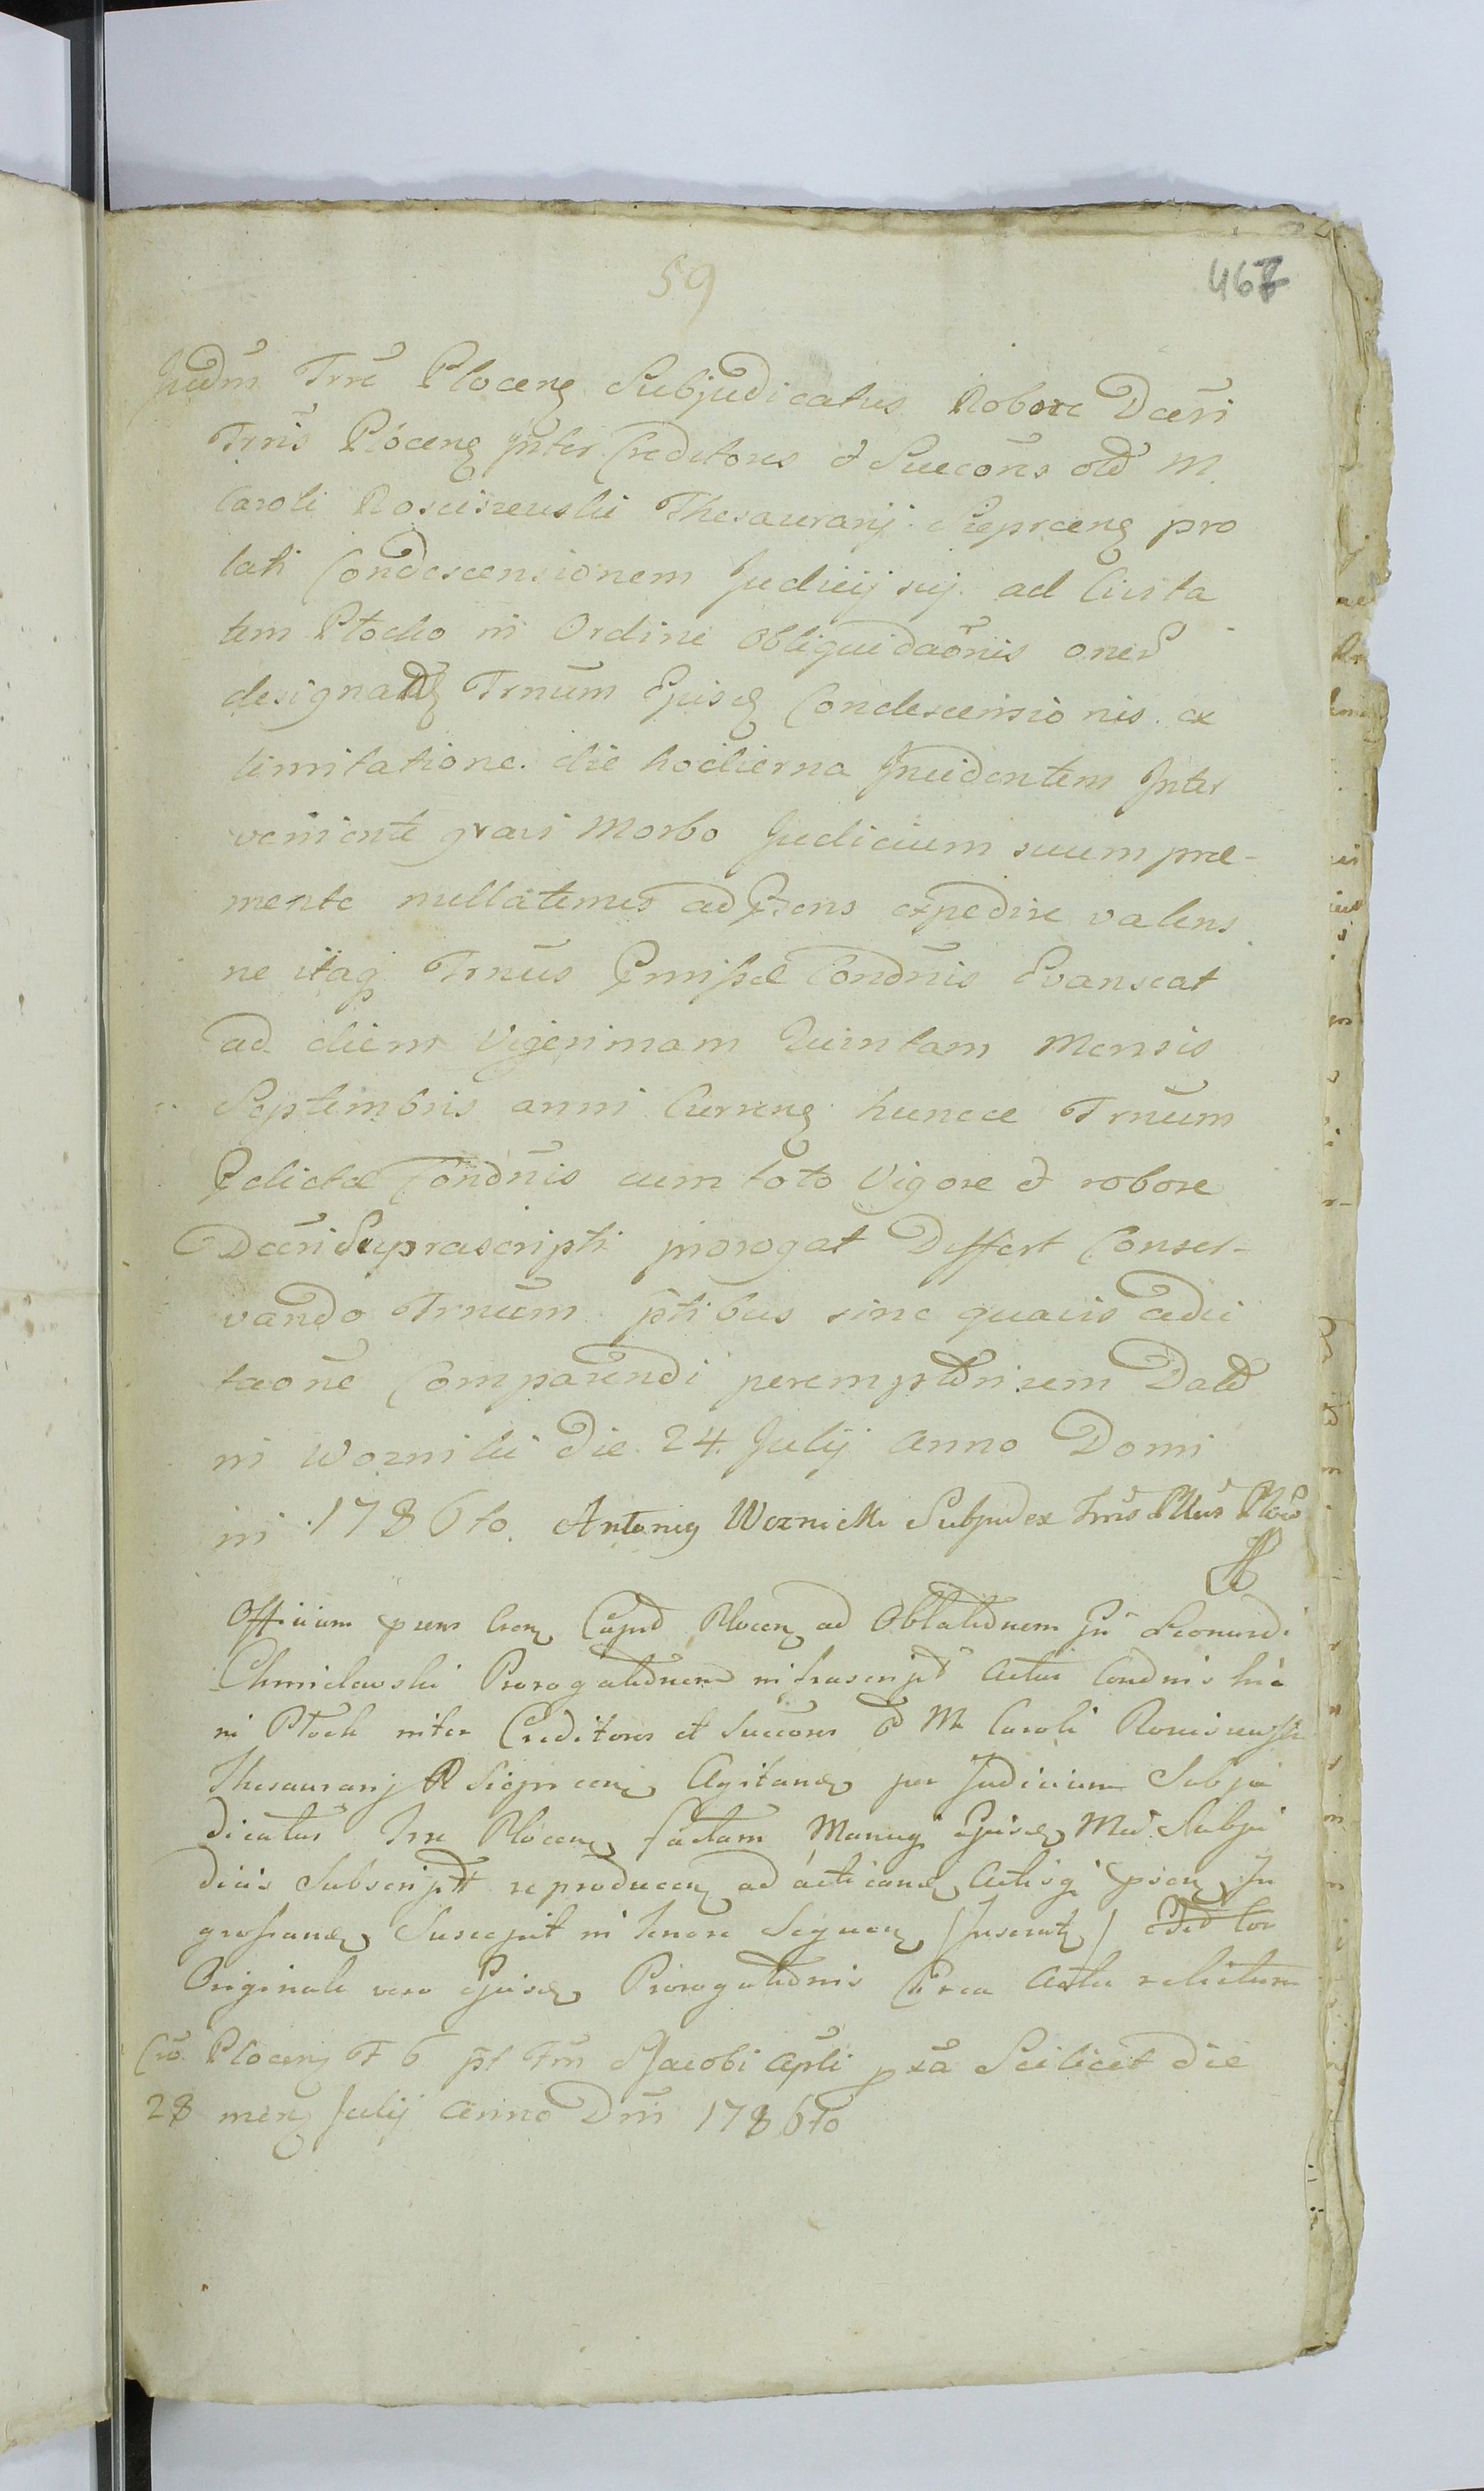 59
467
Judm Trre Plocens Subjudicatus Robore Dcēri
Trris Plocens Inter Creditores & Succōrs olđ M.
Caroli Rosciszewski Thesaurarij Sieprcens pro
lati Condescensionem Judicij sij ad Civita
tem Płocko in Ordine obliquidaōnis oner
designatę Trnum Ejusd Condescensionis ex
limitatione die hodierna Incidentem Inter
veniente gravi Morbo Judicium suum pre-
mente nullatenus ad Psens expedire valens
ne itaq Trnus Pmissæ Condnis Evanscat
ad diem Vigesimam Quintam Mensis
Septembris anni Currens huncce Trnum
Pdictæ Condnis cum toto Vigore & robore
Dcēri Suprascripti prorogat Differt Conser-
vando Trnum ptibus sine quavis adci
taōne Comparendi peremptōrium Datt
in Woznilii Die 24. Julij Anno Domi
ni 1786to. Antonig Woznicki Subjudex Trris Pltus Ploc
Officium psens Crens Capnd Plocens ad Oblatiōnem Gsi Leonardi
Chmielewski Prorogatiōnem infrascript Actus Condnis hic
in Płock inter Creditores et Succōrs oł M Caroli Rosciszewski
Thesaurarij Sieprcens Agitands per Judicium Subju
dicatus Trre Plocens factam Manuq Ejusd Mci Subju
dicis Subscriptt reproducens ad acticand Actisq psens In
grossand Suscepit in tenore Sequens (Inserat)
Originale vero Ejusd Prorogatiōnis Circa Acta relictum
Crō. Plocens F 6 pt Fm S Jacobi Apli pxa Scilicet die
28 mens Julij Anno Dni 1786to